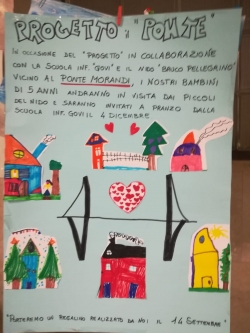 PROGETTO: "PONTE"
IN OCCASIONE DEL "PROGETTO" IN COLLABORAZIONE
CON LA SCUOLA INF. "GOVI" E IL NIDO "BRUCO PELLEGRINO"
VICINO AL PONTE MORANDI, I NOSTRI BAMBINI
DI 5 ANNI ANDRANNO IN VISITA DAI PICCOLI
DEL NIDO E SARANNO INVITATI A PRANZO DALLA
SCUOLA INF. GOVI IL 4 DICEMBRE
"PORTEREMO UN REGALINO REALIZZATO DA NOI IL 14 SETTEMBRE"